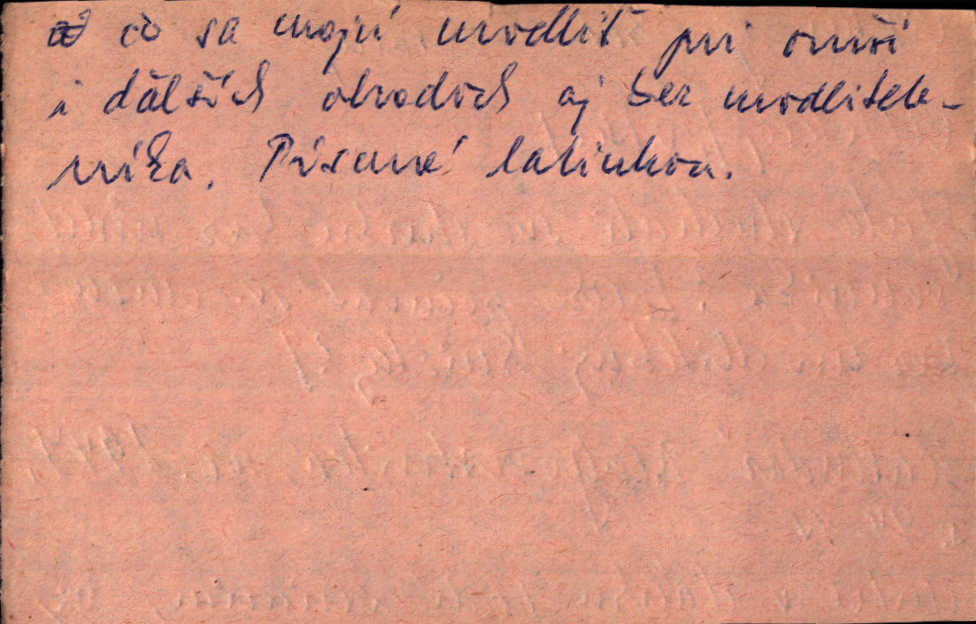 čo sa majú modliť pri omši
i ďalších obradoch aj bez modliteb-
níka. Písané latinkou.